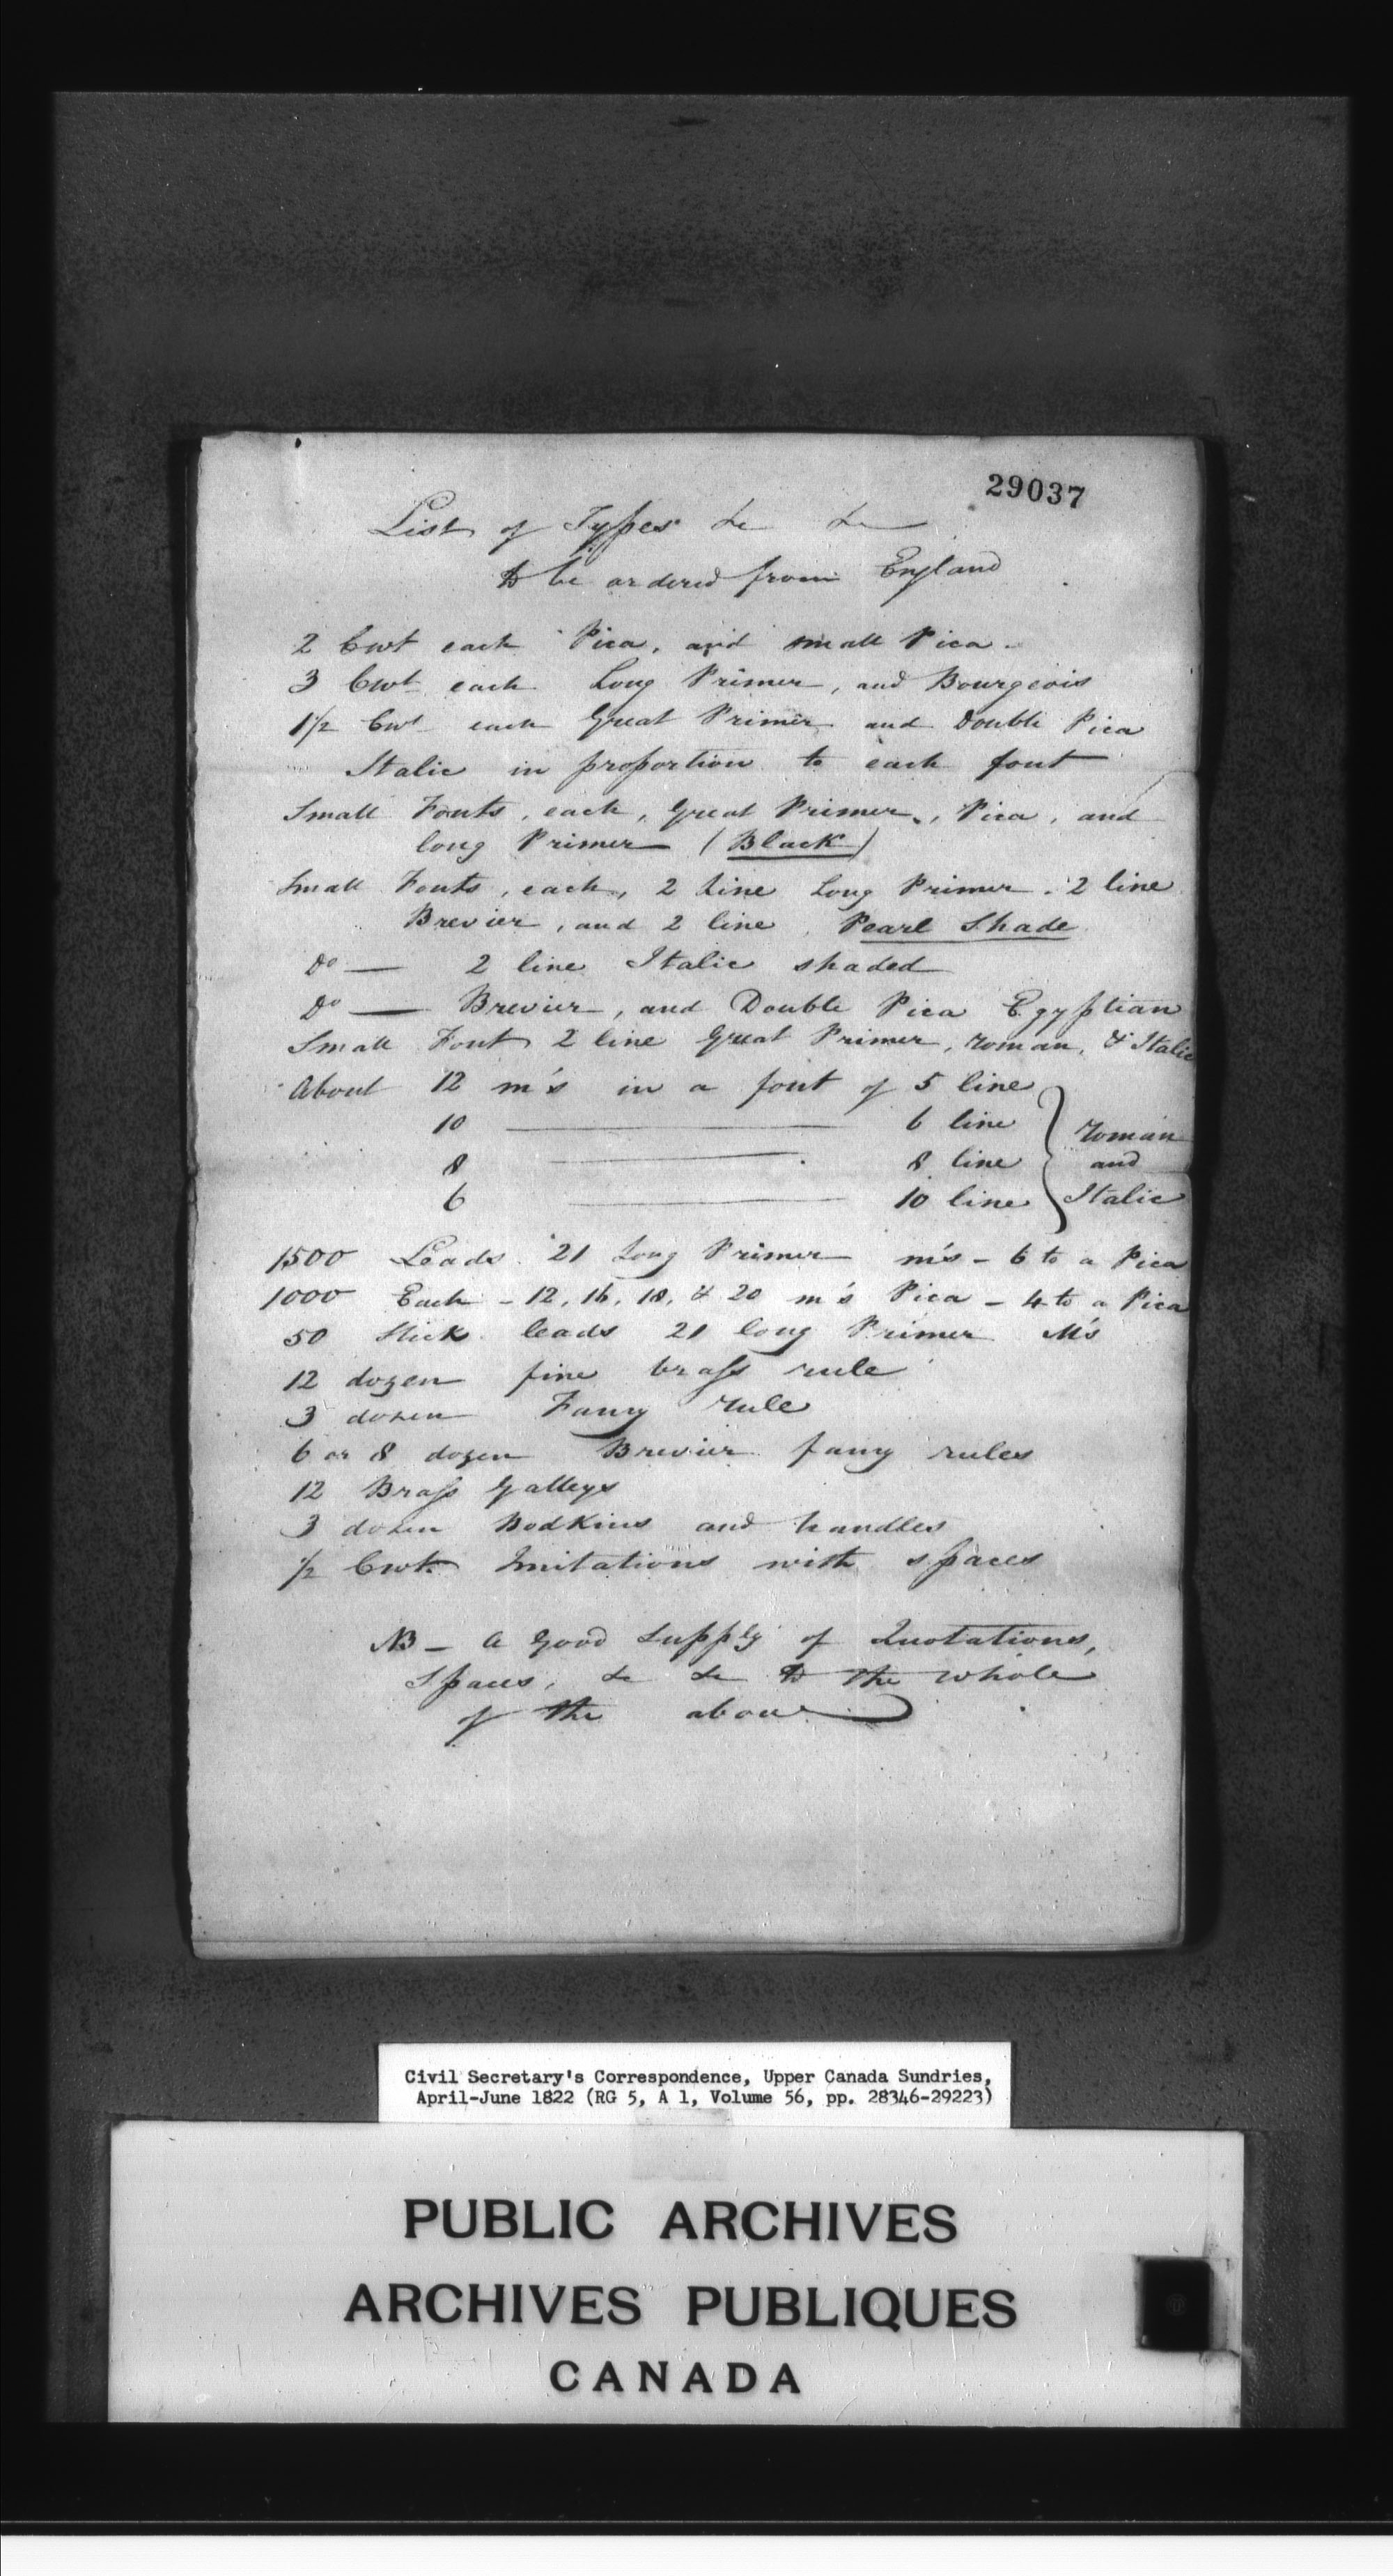 29037
List of Types &c &c
to be ordered from England
2 Cwt each Pica, and small Pica
3 Cwt each Long Primer, and Bourgeois
1½ Cwt each Great Primer and Double Pica
Italic in proportion to each font
Small Fonts, each, Great Primer, Pica, and
long Primer (Black)
Small Fonts, each, 2 line Long Primer. 2 line
Brevier, and 2 line Pearl Shade
Do — 2 line Italic shaded
Do — Brevier, and Double Pica Egyptian
Small Font 2 line Great Primer, roman, & Italic
About 12 m's in a font of 5 line
10 — 6 line
8 — 8 line
6 — 10 line
roman
and
Italic
1500 Leads 21 Long Primer m's - 6 to a Pica
1000 Each - 12, 16, 18, & 20 m's Pica - 4 to a Pica
50 Stick leads 21 long Primer M's
12 dozen fine brass rule
3 dozen Fancy rule
6 or 8 dozen Brevier fancy rules
12 Brass Galleys
3 dozen Bodkins and handles
½ Cwt. Imitations with spaces
NB - A Good supply of Quotations,
Spaces, &c &c to the whole
of the above
Civil Secretary's Correspondence, Upper Canada Sundries,
April-June 1822 (RG 5, A 1, Volume 56, pp. 28346-29223)
PUBLIC ARCHIVES
ARCHIVES PUBLIQUES
CANADA